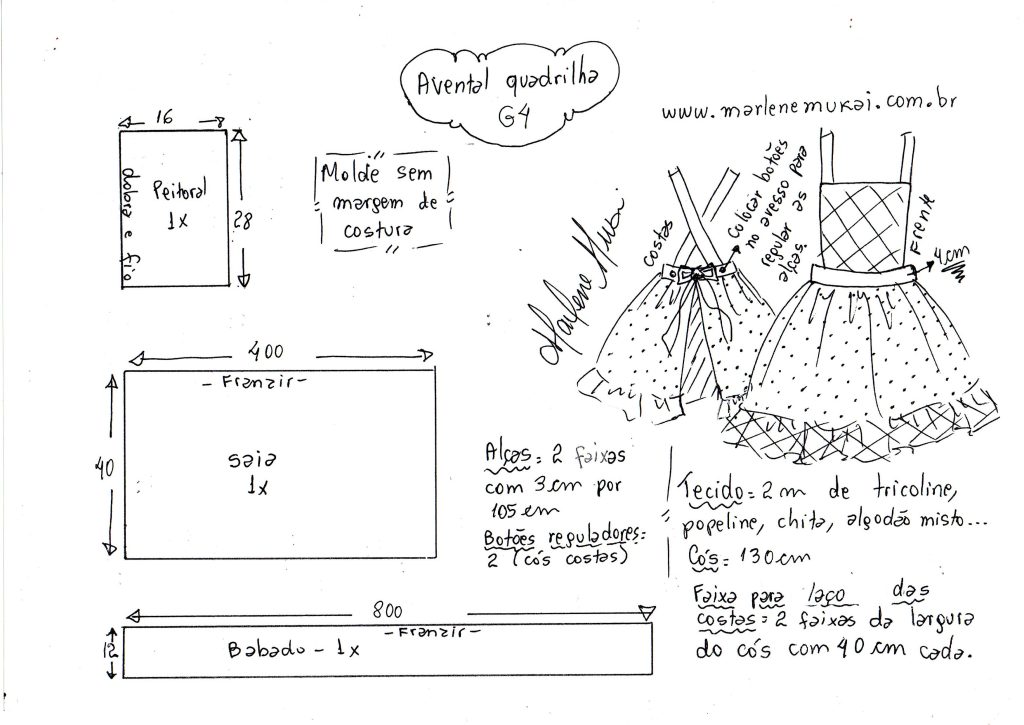 Avental quadrilha
G4
www.marlenemukai.com.br
16
dobra e fio
Peitoral
1x
28
Molde sem
margem de
costura
Marlene Mukai
costas
colocar botões
no avesso para
regular as
alças.
Frente
4cm
400
- Franzir -
40
saia
1x
Alças = 2 faixas
com 3 cm por
105 cm
Botões reguladores =
2 (cós costas)
Tecido = 2 m de tricoline,
popeline, chita, algodão misto...
Cós = 130 cm
Faixa para laço das
costas = 2 faixas da largura
do cós com 40 cm cada.
800
- Franzir -
12
Babado - 1x